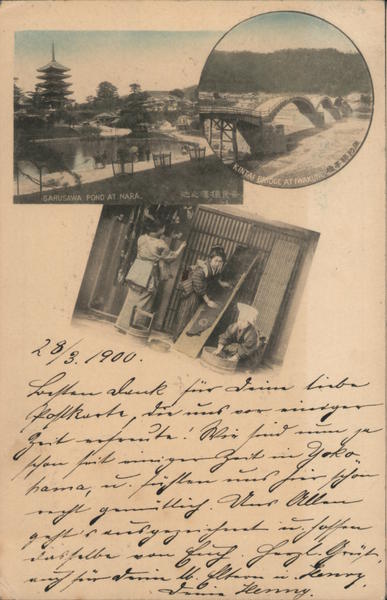 SARUSAWA POND AT NARA.
奈良猿澤之池
KINTAI BRIDGE AT IWAKUNI.
28/3. 1900.
Besten Dank für Deine liebe
Postkarte, die uns vor einiger
Zeit erfreute! Wir sind nun ja
schon seit einiger Zeit in Yoko
hama, u. fühlen uns hier schon
recht gemütlich. Uns Allen
geht's ausgezeichnet u. hoffen
dasselbe von Euch. Herzl. Grüße,
auch für Deine lb. Eltern u. Henry,
Deine Henny.